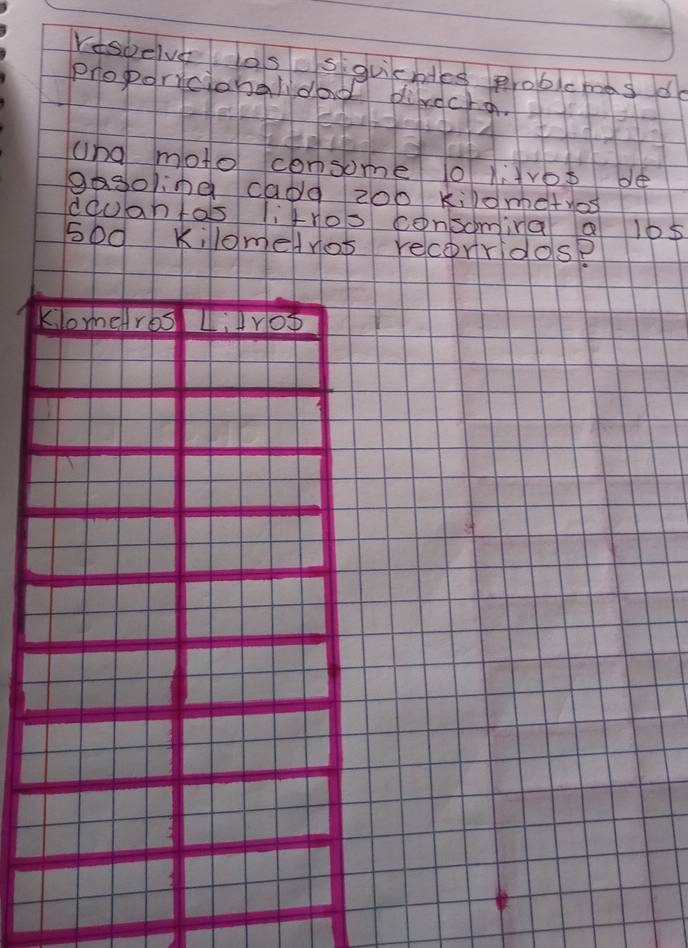 resuelve los siguientes problemas de
proporcionalidad directa.
Una moto consume 10 litros de
gasolina cada 200 Kilometros
dcuantas litros consumira a los
500 Kilometros recorridos?
Kilometros Litros